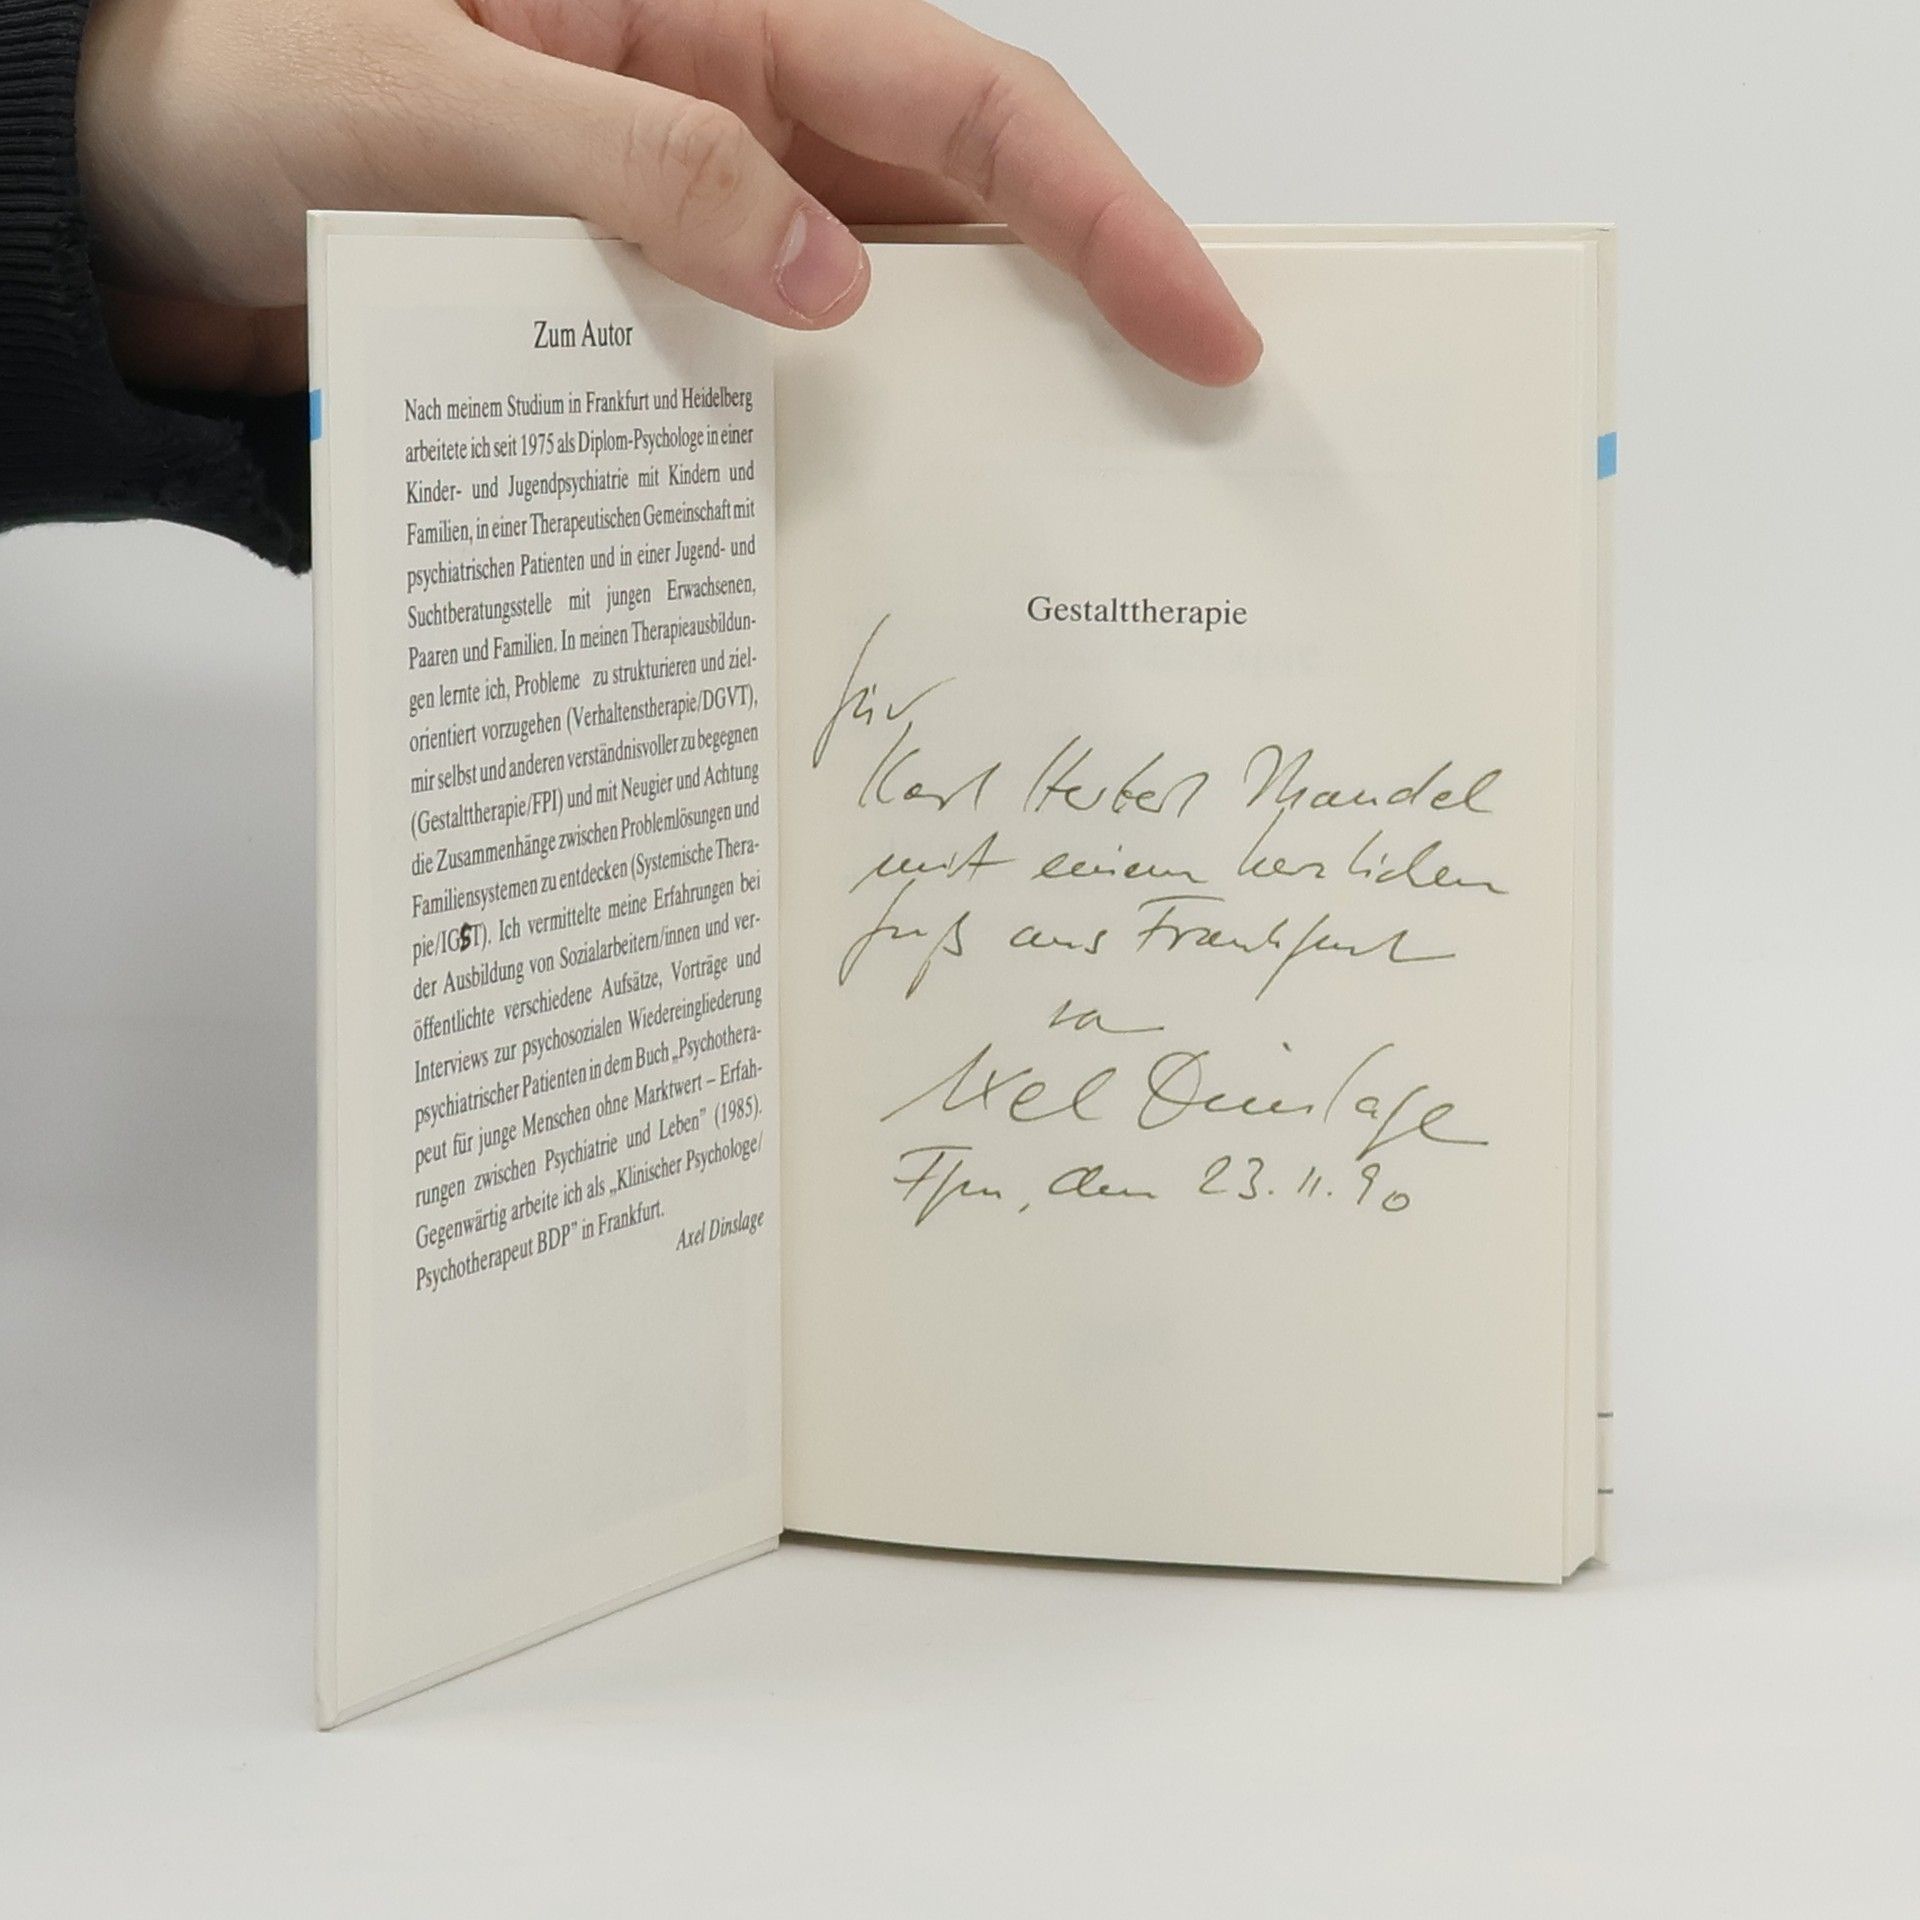 Zum Autor
Nach meinem Studium in Frankfurt und Heidelberg
arbeitete ich seit 1975 als Diplom-Psychologe in einer
Kinder- und Jugendpsychiatrie mit Kindern und
Familien, in einer Therapeutischen Gemeinschaft mit
psychiatrischen Patienten und in einer Jugend- und
Suchtberatungsstelle mit jungen Erwachsenen,
Paaren und Familien. In meinen Therapieausbildun-
gen lernte ich, Probleme zu strukturieren und ziel-
orientiert vorzugehen (Verhaltenstherapie/DGVT),
mir selbst und anderen verständnisvoller zu begegnen
(Gestalttherapie/FPI) und mit Neugier und Achtung
die Zusammenhänge zwischen Problemlösungen und
Familiensystemen zu entdecken (Systemische Thera-
pie/IGST). Ich vermittelte meine Erfahrungen bei
der Ausbildung von Sozialarbeitern/innen und ver-
öffentlichte verschiedene Aufsätze, Vorträge und
Interviews zur psychosozialen Wiedereingliederung
psychiatrischer Patienten in dem Buch „Psychothera-
peut für junge Menschen ohne Marktwert – Erfah-
rungen zwischen Psychiatrie und Leben” (1985).
Gegenwärtig arbeite ich als „Klinischer Psychologe/
Psychotherapeut BDP” in Frankfurt.
Axel Dinslage
Gestalttherapie
für
Karl Herbert Mandel
mit einem herzlichen
Gruß aus Frankfurt
von
Axel Dinslage
Ffm, den 23.11.90